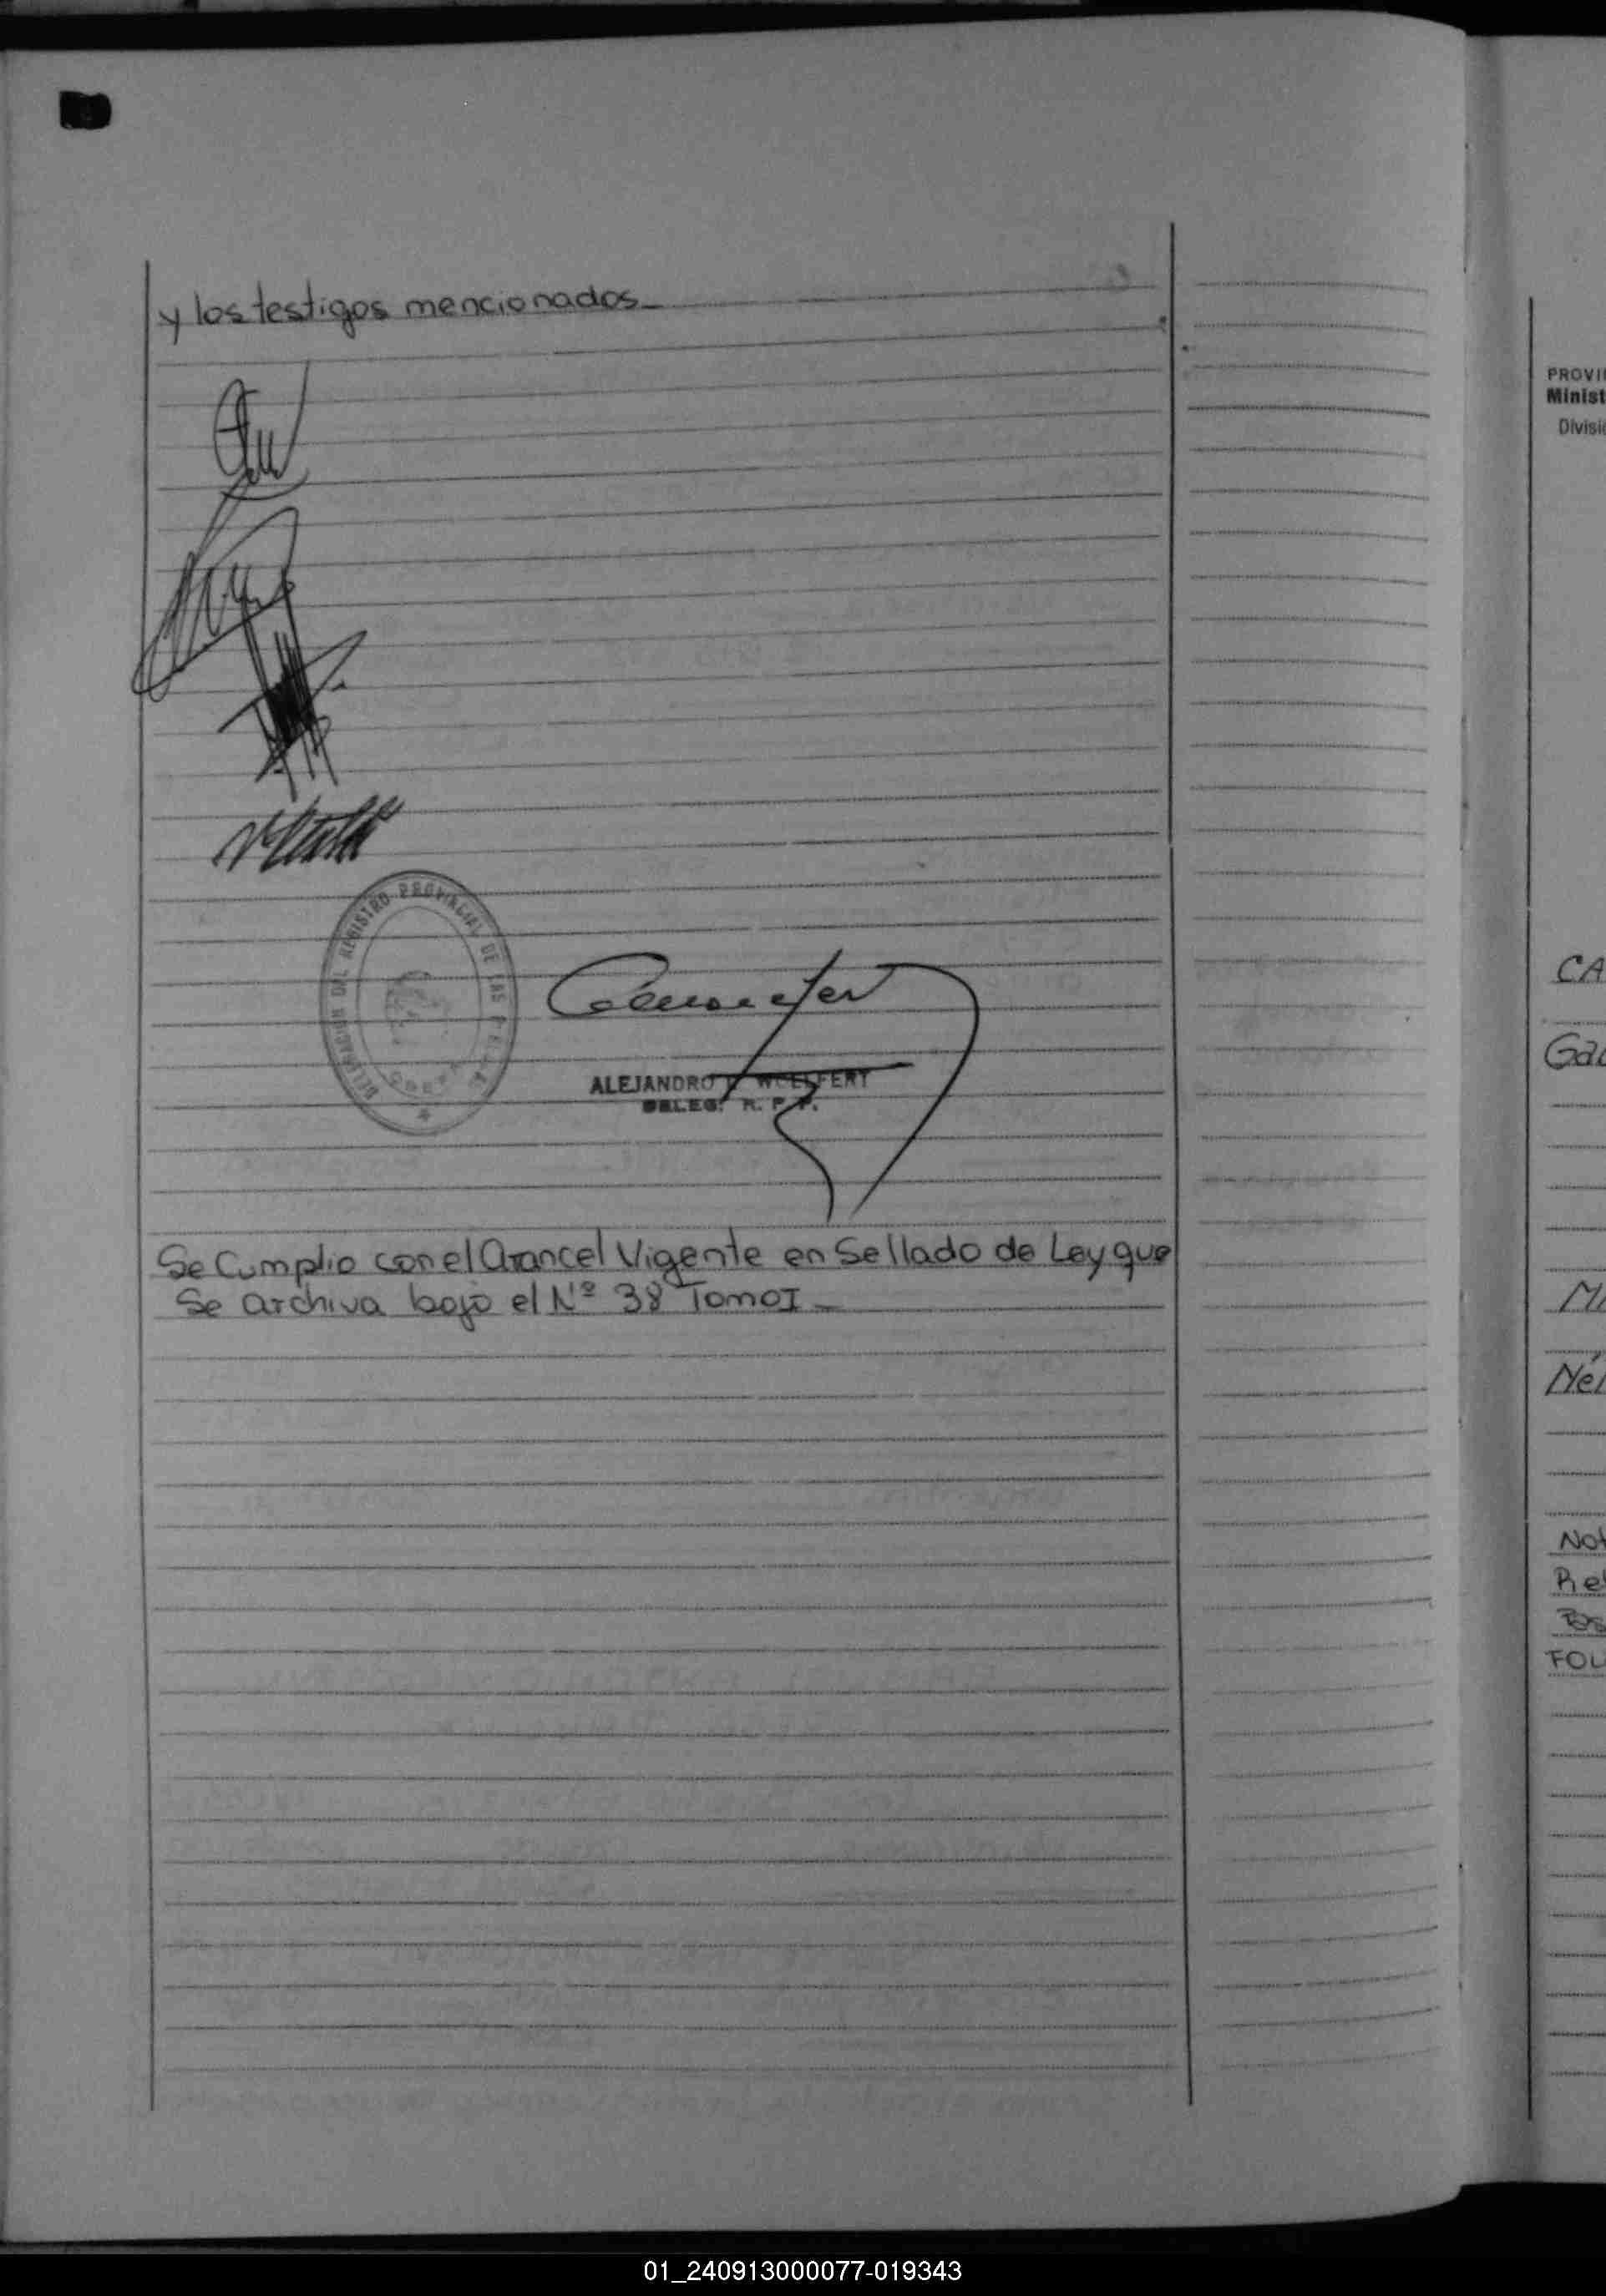 y los testigos mencionados
DELEGACION DEL REGISTRO PROVINCIAL DE LAS
ALEJANDRO WOLFERT
DELEG. R. P. P.
Se Cumplio con el Arancel Vigente en Sellado de Ley que
Se archiva bajo el Nº 38 Tomo I
PROVI
Minist
Divisi
CA
Gac
Nél
Not
Rel
FOL
01_240913000077-019343